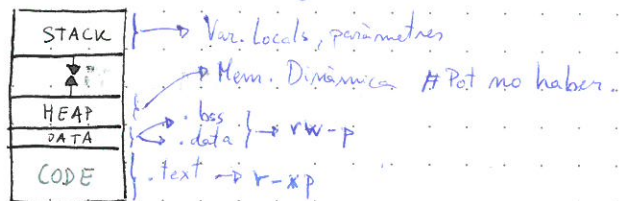 STACK } → Var. Locals, paràmetres
→ Mem. Dinàmica # Pot no haber..
HEAP
→ .bss
DATA } → .data } → rw-p
CODE { .text → r-xp